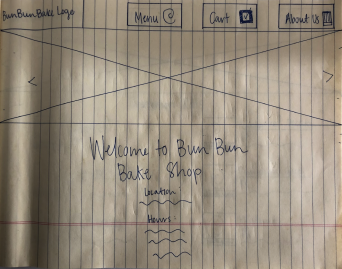 BunBunBake Logo
Menu
Cart
About Us
<
>
Welcome to Bun Bun
Bake Shop
Location
Hours